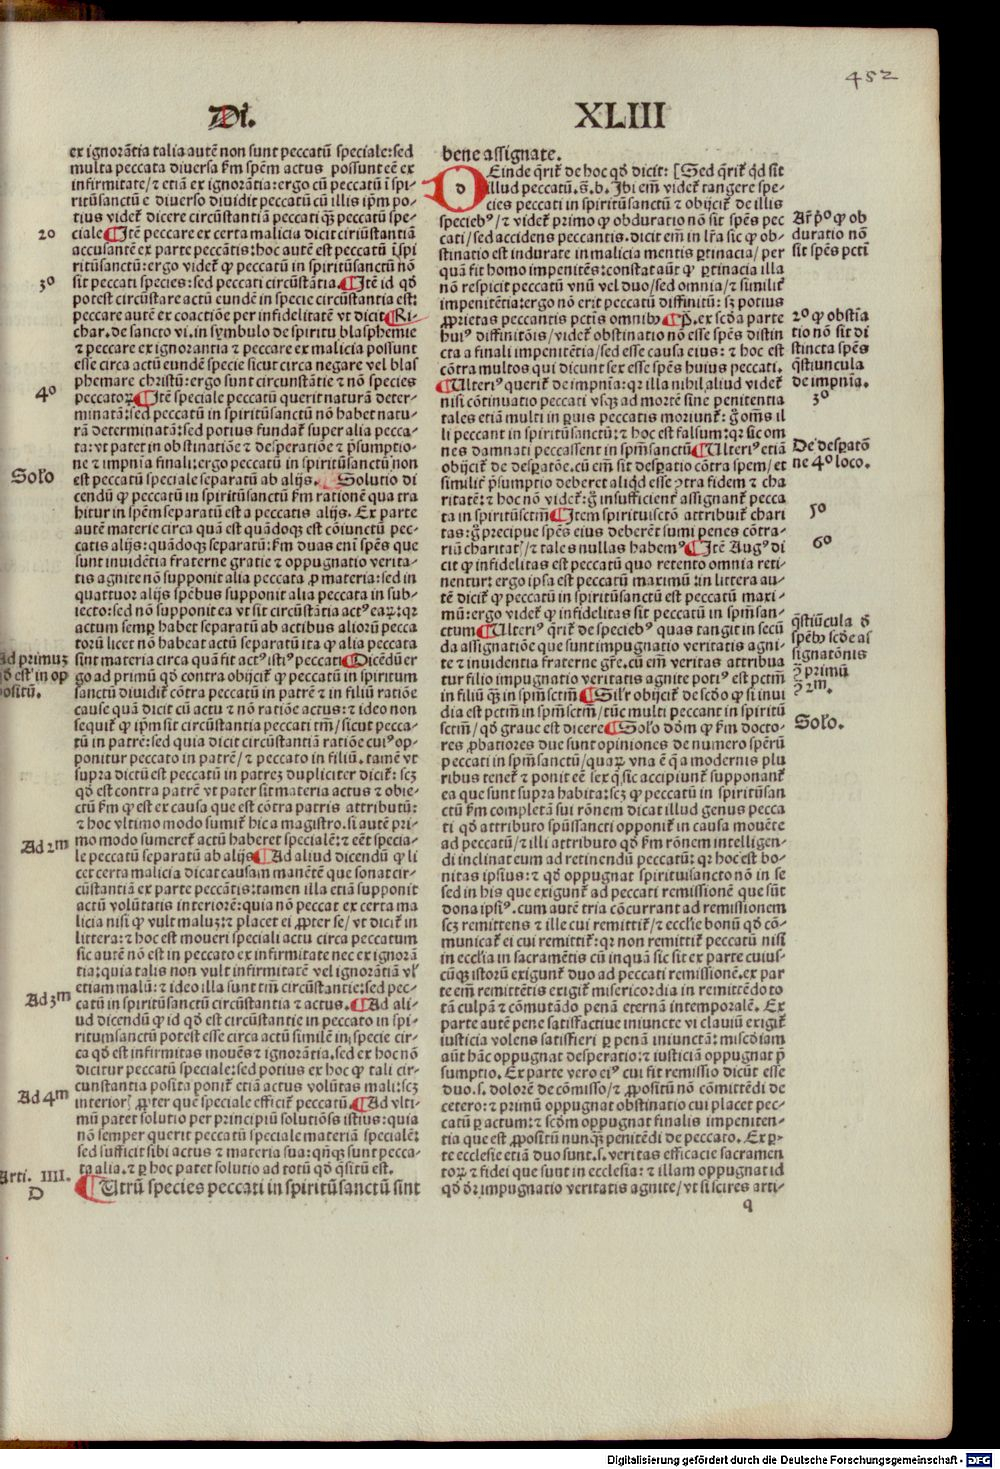 452
Di. XLIII
ex ignorãtia talia autẽ non sunt peccatũ speciale: sed
multa peccata diuersa ẜm spẽm actus possunt eẽ ex
infirmitate/ ⁊ etiã ex ignorãtia: ergo cũ peccatũ ĩ spi-
ritũsanctũ e diuerso diuidit peccatũ cũ illis ip̃m po-
tius videt̃ dicere circũstantiã peccati q̃ꝫ peccatũ spe-
2o
ciale ¶Itẽ peccare ex certa malicia dicit circũstantiã
accusantẽ ex parte peccãtis: hoc autẽ est peccatũ ĩ spi
ritũsanctũ: ergo videt̃ ꝙ peccatũ in spiritũsanctũ nõ
3o
sit peccati species: sed peccati circũstãtia. ¶Itẽ id qđ
potest circũstare actũ eundẽ in specie circũstantia est:
peccare autẽ ex coactiõe per infidelitatẽ vt dicit ¶Ri-
char. de sancto vi. in symbulo de spiritu blasphemie
⁊ peccare ex ignorantia ⁊ peccare ex malicia possunt
esse circa actũ eundẽ specie sicut circa negare vel blas
phemare christũ: ergo sunt circunstãtie ⁊ nõ species
4o
peccatoꝝ. ¶Itẽ speciale peccatũ querit naturã deter-
minatã: sed peccatũ in spiritũsanctũ nõ habet natu-
rã determinatã: sed potius fundat̃ super alia pecca-
ta: vt patet in obstinatiõe ⁊ desperatiõe ⁊ p̃sumptio-
ne ⁊ impñia finali: ergo peccatũ in spiritũsanctũ non
Solo
est peccatũ speciale separatũ ab alijs. ¶Solutio di
cendũ ꝙ peccatũ in spiritũsanctũ ẜm rationẽ qua tra
hitur in spẽm separatũ est a peccatis alijs. Ex parte
autẽ materie circa quã est quãdoqꝫ est cõiunctũ pec-
catis alijs: quãdoqꝫ separatũ: ẜm duas enĩ spẽs que
sunt inuidẽtia fraterne gratie ⁊ oppugnatio verita-
tis agnite nõ supponit alia peccata ꝓ materia: sed in
quattuor alijs spẽbus supponit alia peccata in sub-
iecto: sed nõ supponit ea vt sit circũstãtia actꝰ eaꝝ: qꝛ
actum semꝑ habet separatũ ab actibus alioꝝ pecca
torũ licet nõ habeat actũ separatũ ita ꝙ alia peccata
Ad primuꝫ
sint materia circa quã fit actꝰ istiꝰ peccati ¶Dicẽdũ er
qđ est in op
go ad primũ qđ contra obijcit̃ ꝙ peccatũ in spiritum
positũ.
sanctũ diuidit̃ cõtra peccatũ in patrẽ ⁊ in filiũ ratiõe
cause quã dicit cũ actu ⁊ nõ ratiõe actus: ⁊ ideo non
sequit̃ ꝙ ip̃m sit circũstantia peccati tm̃/ sicut pecca-
tũ in patrẽ: sed quia dicit circũstantiã ratiõe cuiꝰ op-
ponitur peccato in patrẽ/ ⁊ peccato in filiũ. tamẽ vt
supra dictũ est peccatũ in patreꝫ dupliciter dicit̃: scꝫ
qđ est contra patrẽ vt pater sit materia actus ⁊ obie-
ctũ ẜm ꝙ est ex causa que est cõtra patris attributũ:
⁊ hoc vltimo modo sumit̃ hic a magistro. si autẽ pri-
Ad 2m
mo modo sumeret̃ actũ haberet specialẽ: ⁊ eẽt specia-
le peccatũ separatũ ab alijs ¶Ad aliud dicendũ ꝙ li
cet certa malicia dicat causam manẽtẽ que sonat cir-
cũstantiã ex parte peccãtis: tamen illa etiã supponit
actũ volũtatis interiorẽ: quia nõ peccat ex certa ma
licia nisi ꝙ vult maluꝫ: ⁊ placet ei ꝓpter se/ vt dicit̃ in
littera: ⁊ hoc est moueri speciali actu circa peccatum
sic autẽ nõ est in peccato ex infirmitate nec ex ignorã
tia: quia talis non vult infirmitatẽ vel ignorãtiã vl̃
etiam malũ: ⁊ ideo illa sunt tm̃ circũstantie: sed pec-
Ad 3m
catũ in spiritũsanctũ circũstantia ⁊ actus. ¶Ad ali-
ud dicendũ ꝙ id qđ est circũstantie in peccato in spi-
ritumsanctũ potest esse circa actũ similẽ in specie cir-
ca qđ est infirmitas mouẽs ⁊ ignorãtia. sed ex hoc nõ
dicitur peccatũ speciale: sed potius ex hoc ꝙ tali cir-
cunstantia posita ponit̃ etiã actus volũtas mali: scꝫ
Ad 4m
interior/ ꝓpter quẽ speciale efficit̃ peccatũ. ¶Ad vlti-
mũ patet solutio per principiũ solutiõis istius: quia
nõ semper querit peccatũ speciale materiã specialẽ:
sed sufficit sibi actus ⁊ materia sua: qñqꝫ sunt pecca-
ta alia. ⁊ ꝑ hoc patet solutio ad totũ qđ q̃situm est.
Arti. IIII.
D
¶Utrũ species peccati in spiritũsanctũ sint
bene assignate.
DEinde q̃rit̃ de hoc qđ dicit: [Sed q̃rit̃ qđ sit
illud peccatũ. ⁊c̃. Ibi em̃ videt̃ tangere spe-
cies peccati in spiritũsanctũ ⁊ obijcit̃ de illis
speciebꝰ/ ⁊ videt̃ primo ꝙ obduratio nõ sit spẽs pec
Ar̃ p̃o ꝙ ob
duratio nõ
sit spẽs pctĩ
cati/ sed accidens peccantis. dicit em̃ in lr̃a sic ꝙ ob-
stinatio est indurate in malicia mentis ꝑtinacia/ per
quã fit homo impenitẽs: constat aũt ꝙ ꝑtinacia illa
nõ respicit peccatũ vnũ vel duo/ sed omnia/ ⁊ similit̃
impenitẽtia: ergo nõ erit peccatũ diffinitũ: sꝫ potius
2o ꝙ obstĩa
tio nõ sit di
stincta spẽs
q̃stiuncula
de impnĩa.
ꝓprietas peccantis pctĩs omnibꝫ ¶P̃. ex scđa parte
huiꝰ diffinitõis/ videt̃ obstinatio nõ esse spẽs distin
cta a finali impenitẽtia/ sed esse causa eius: ⁊ hoc est
cõtra multos qui dicunt sex esse spẽs huius peccati.
3o
¶Ulteriꝰ querit̃ de impnĩa: qꝛ illa nihil aliud videt̃
nisi cõtinuatio peccati vsqꝫ ad mortẽ sine penitentia
tales etiam multi in ꝑuis peccatis moriunt̃: g̃ om̃s il
li peccant in spiritũsanctũ: ⁊ hoc est falsum: qꝛ sic om
De desperatõ
ne 4o loco.
nes damnati peccassent in spm̃sanctũ ¶Ulteriꝰ etiã
obijcit̃ de desꝑatõe. cũ em̃ sit desꝑatio cõtra spem/ et
similit̃ p̃sumptio deberet aliqđ esse ꝯtra fidem ⁊ cha
ritatẽ: ⁊ hoc nõ videt̃: g̃ insufficient̃ assignant̃ pecca
5o
ta in spiritũsctm̃ ¶Item spirituisctõ attribuit̃ chari
tas: g̃ precipue spẽs eius deberẽt sumi penes cõtra-
6o
riũ charitatꝭ/ ⁊ tales nullas habemꝰ ¶Itẽ Augꝰ di
cit ꝙ infidelitas est peccatũ quo retento omnia reti-
nentur: ergo ipsa est peccatũ maximũ: in littera au-
tẽ dicit̃ ꝙ peccatũ in spiritũsanctũ est peccatũ maxi-
mũ: ergo videt̃ ꝙ infidelitas sit peccatũ in spm̃san-
q̃stiũcula đ
spẽbꝫ scđe as
signatõnis
ꝯ̃ primũ
ꝯ̃ 2m.
ctum ¶Ulteriꝰ q̃rit̃ de speciebꝰ quas tangit in secũ
da assignatiõe que sunt impugnatio veritatis agni-
te ⁊ inuidentia fraterne gr̃e. cũ em̃ veritas attribua
tur filio impugnatio veritatis agnite potiꝰ est pctm̃
in filiũ q̃ꝫ in spm̃sctm̃ ¶Sil̃r obijcit̃ de scđo ꝙ si inui
dia est pctm̃ in spm̃sctm̃/ tũc multi peccant in spiritũ
Solo.
sctm̃/ qđ graue est dicere ¶Solo đõm ꝙ ẜm docto-
res ꝓbatiores due sunt opiniones de numero sperũ
peccati in spm̃sanctũ/ quaꝝ vna ẽ q̃ a modernis plu
ribus tenet̃ ⁊ ponit eẽ sex q̃ sic accipiunt̃ supponant̃
ea que sunt supra habita: scꝫ ꝙ peccatũ in spiritũsan
ctũ ẜm completã sui rõnem dicat illud genus pecca
ti qđ attributo spũssancti opponit̃ in causa mouẽte
ad peccatũ/ ⁊ illi attributo qđ ẜm rõnem intelligen-
di inclinat eum ad retinendũ peccatũ: qꝛ hoc est bo-
nitas ipsius: ⁊ qđ oppugnat spirituisancto nõ in se
sed in his que exigunt̃ ad peccati remissionẽ que sũt
dona ipsiꝰ. cum autẽ tria cõcurrant ad remissionem
scꝫ remittens ⁊ ille cui remittit̃/ ⁊ ecclie bonũ qđ cõ-
municat̃ ei cui remittit̃: qꝛ non remittit̃ peccatũ nisi
in ecclia in sacramẽtis cũ in quã sic sit ex parte cuius-
cũqꝫ istorũ exigunt̃ duo ad peccati remissionẽ. ex par
te em̃ remittẽtis exigit̃ misericordia in remittẽdo to
tã culpã ⁊ cõmutãdo penã eternã in temporalẽ. Ex
parte autẽ pene satisfactiue iniuncte vi clauiũ exigit̃
iusticia volens satisfieri ꝑ penã iniunctã: miscđiam
aũt hãc oppugnat desperatio: ⁊ iusticiã oppugnat p̃
sumptio. Ex parte vero eiꝰ cui fit remissio dicũt esse
duo. s. dolorẽ de cõmisso/ ⁊ ꝓpositũ nõ cõmittẽdi de
cetero: ⁊ primũ oppugnat obstinatio cui placet pec-
catũ ꝑ actum: ⁊ scđm oppugnat finalis impeniten-
tia que est ꝓpositũ nunq̃ꝫ penitẽdi de peccato. Ex ꝑ-
te ecclesie etiã duo sunt. s. veritas efficacie sacramen
toꝝ ⁊ fidei que sunt in ecclesia: ⁊ illam oppugnat id
qđ đr impugnatio veritatis agnite/ vt si scires arti-
q
Digitalisierung gefördert durch die Deutsche Forschungsgemeinschaft - DFG